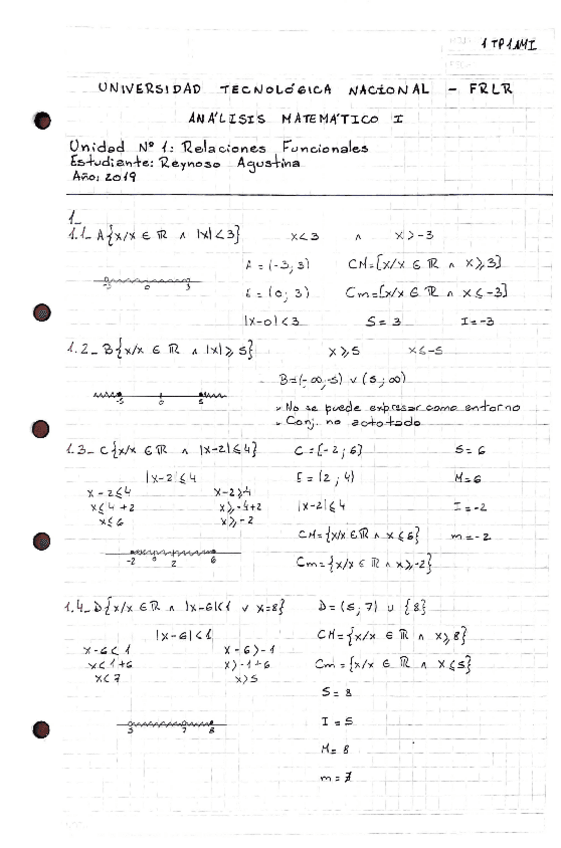 1 TP1 AMI
UNIVERSIDAD TECNOLÓGICA NACIONAL - FRLR
ANÁLISIS MATEMÁTICO I
Unidad Nº 1: Relaciones Funcionales
Estudiante: Reynoso Agustina
Año: 2019
1_
1.1_ A{x/x ∈ ℝ ∧ |x|<3} x<3 ∧ x>-3
A = (-3; 3) CM=[x/x ∈ ℝ ∧ x⩾3]
-3 0 3
E = (0; 3) Cm=[x/x ∈ ℝ ∧ x⩽-3]
|x-0|<3 S = 3 I=-3
1.2_ B{x/x ∈ ℝ ∧ |x|⩾5} x⩾5 x⩽-5
B=(-∞,-5) ∨ (5;∞)
-5 0 5
- No se puede expresar como entorno
- Conj. no acotado
1.3_ C{x/x ∈ ℝ ∧ |x-2|⩽4} C = [-2; 6] S = 6
|x-2|⩽4 E = (2; 4) M=6
x-2⩽4 x-2⩾-4 |x-2|⩽4 I=-2
x⩽4+2 x⩾-4+2
x⩽6 x⩾-2 CM={x/x ∈ ℝ ∧ x⩽6} m=-2
-2 0 2 6 Cm={x/x ∈ ℝ ∧ x⩾-2}
1.4_ D{x/x ∈ ℝ ∧ |x-6|<1 ∨ x=8} D=(5; 7) ∪ {8}
|x-6|<1 CM={x/x ∈ ℝ ∧ x⩾8}
x-6<1 x-6>-1
x<1+6 x>-1+6 Cm={x/x ∈ ℝ ∧ x⩽5}
x<7 x>5
S= 8
7 8 I = 5
M= 8
m=